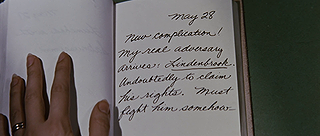 May 28
New complication!
My real adversary
arrives: Lindenbrook.
Undoubtedly to claim
his rights. Must
fight him somehow—